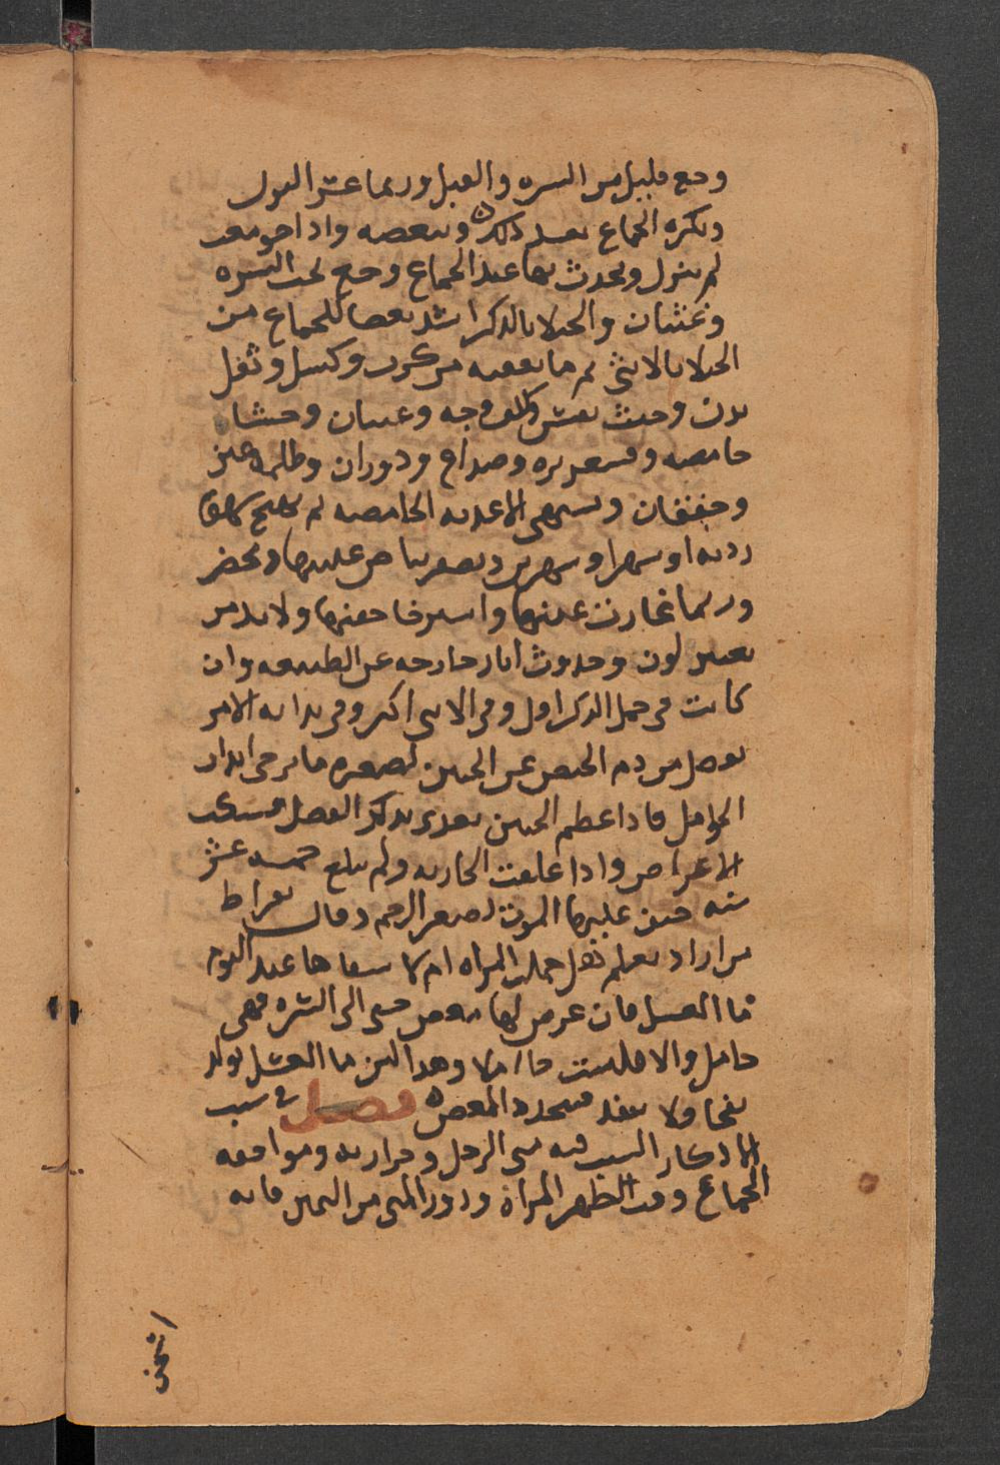 وجع قليل بين السره والقبل وربما عسر البول
وتكره الجماع بعد ذلك وتبغضه واذا جومعت
لم تنزل ويحدث بها عند الجماع وجع تحت السره
وغثيان والحبلا بالذكر اشد بغضا للجماع من
الحبلا بالانثى ثم ما يعقبه من كرب وكسل وثقل
بدن وخبث نفس وكلف وجه وغثيان وجشا
حامضه وقشعريره وصداع ودوران وظلمة عين
وخفقان وتشتهى الاغذيه الحامضه ثم تهيج شهوة
رديه او شهرا وشهرين ويصفر بياض عينيها ويخضر
وربما غارت عينها واسترخا جفنها ولا بد من
تغير لون وحدوث اثار خارجه عن الطبيعه وان
كانت فى حمل الذكر اقل وفى الانثى اكثر وفى بدايه الامر
يفضل من دم الحيض عن الجنين لصغره ما يرخى ابدان
الحوامل فاذا عظم الجنين تغذى بذلك الفضل فتسكن
الاعراض واذا علقت الجاريه ولم تبلغ خمسه عشر
سنه خيف عليها الموت لصغر الرحم وقال بقراط
من اراد يعلم هل حملت المراه ام لا سقاها عند النوم
ما العسل فان عرض لها مغص حتى الى السره فهى
حامل والا فليست حاملا وهذا لان ما العسل يولد
نفخا ولا ينفذ فيحدث المغص فصل فى سبب
الاذكار السبب فيه منى الرجل وحرارته وموافقه
الجماع وقت الطهر للمراة ودرور المنى من اليمين فانه
اسخن